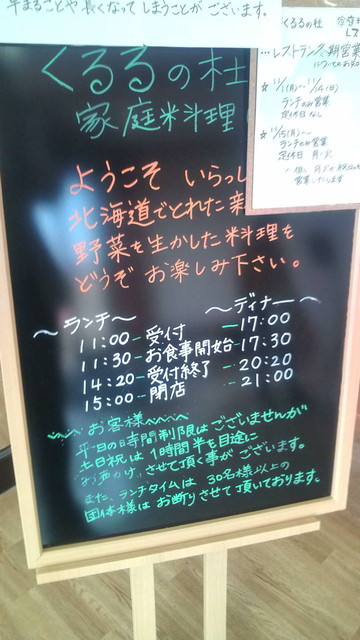 早まることや長くなってしまうことがございます。
くるるの杜
レストラン冬期営業
についてのお知
☆ 11/1(月)〜11/14(日)
ランチのみ営業
定休日なし
☆ 11/15(月)〜
ランチのみ営業
定休日 月・火
営業いたします
くるるの杜
家庭料理
ようこそ いらっし
北海道でとれた
野菜を生かした料理を
どうぞ お楽しみ下さい。
〜ランチ〜 〜ディナー〜
11:00 - 受付 - 17:00
11:30 - お食事開始 - 17:30
14:20 - 受付終了 - 20:20
15:00 - 閉店 - 21:00
お客様
平日の時間制限はございませんが
土日祝は1時間半を目途に
お声がけさせて頂く事がございます。
また、ランチタイムは 30名様以上の
団体様はお断りさせて頂いております。